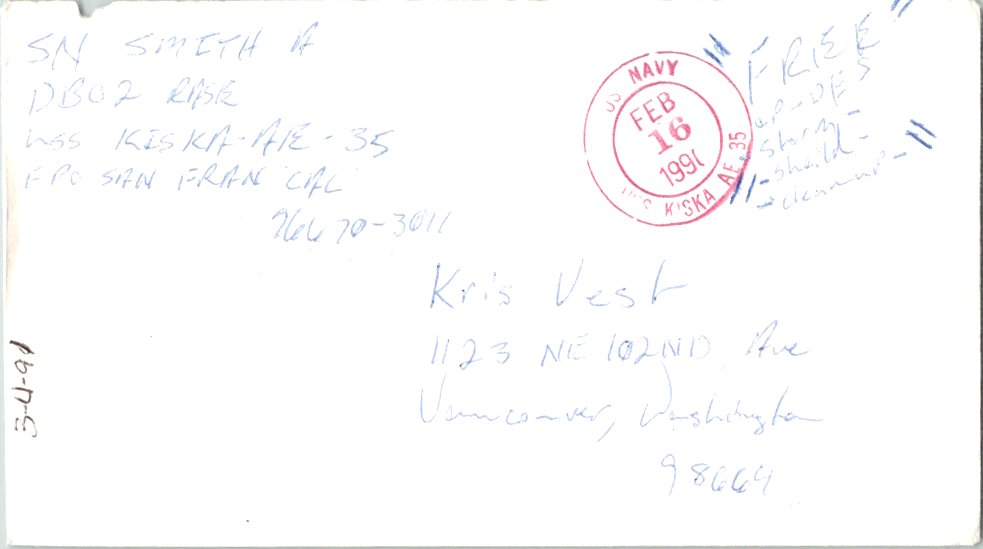 SN SMITH A
DB02 RASE
USS KISKA-AE-35
FPO SAN FRAN CAL
96670-3011
US NAVY
FEB
16
1991
USS KISKA AE 35
"FREE"
op-DES
storm-
-sheild-
Kris Vest
1123 NE 102ND Ave
Vancouver, Washington
98664
3-4-91